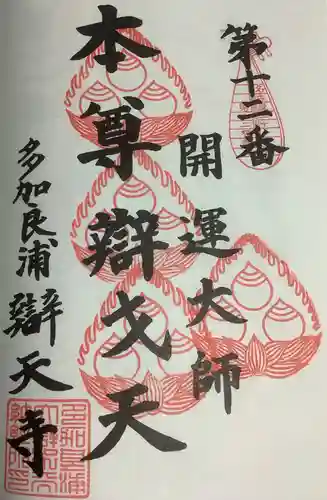 第十二番
開運大師
本尊辯戈天
多加良浦
辯天寺